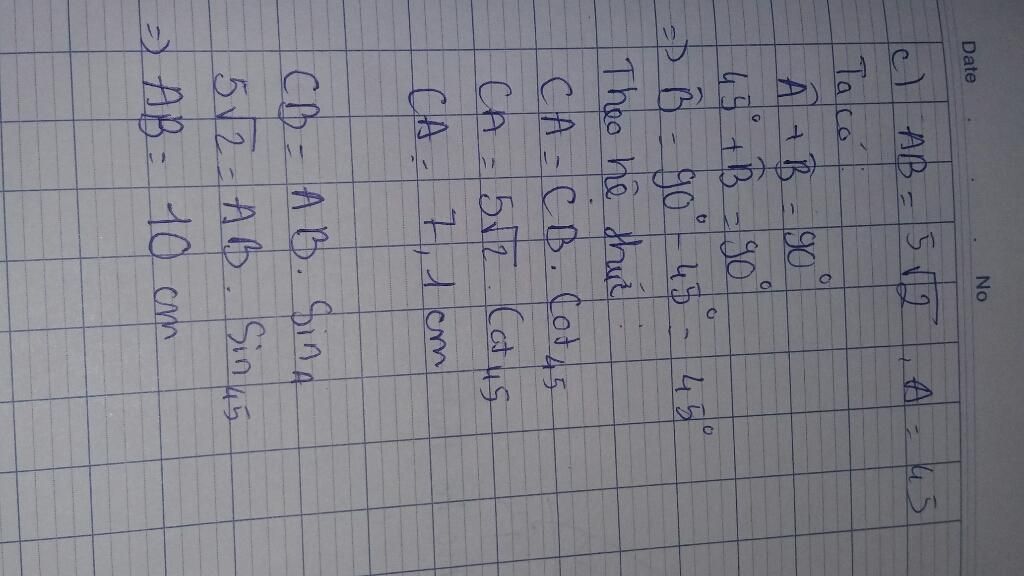 Date No
c) AB = 5√2, A = 45
Ta có:
Â + B̂ = 90°
45° + B̂ = 90°
=> B̂ = 90° - 45° = 45°
Theo hệ thức:
CA = CB. Cot 45
CA = 5√2. Cot 45
CA = 7,1 cm
CB = AB. Sin A
5√2 = AB. Sin 45
=> AB = 10 cm